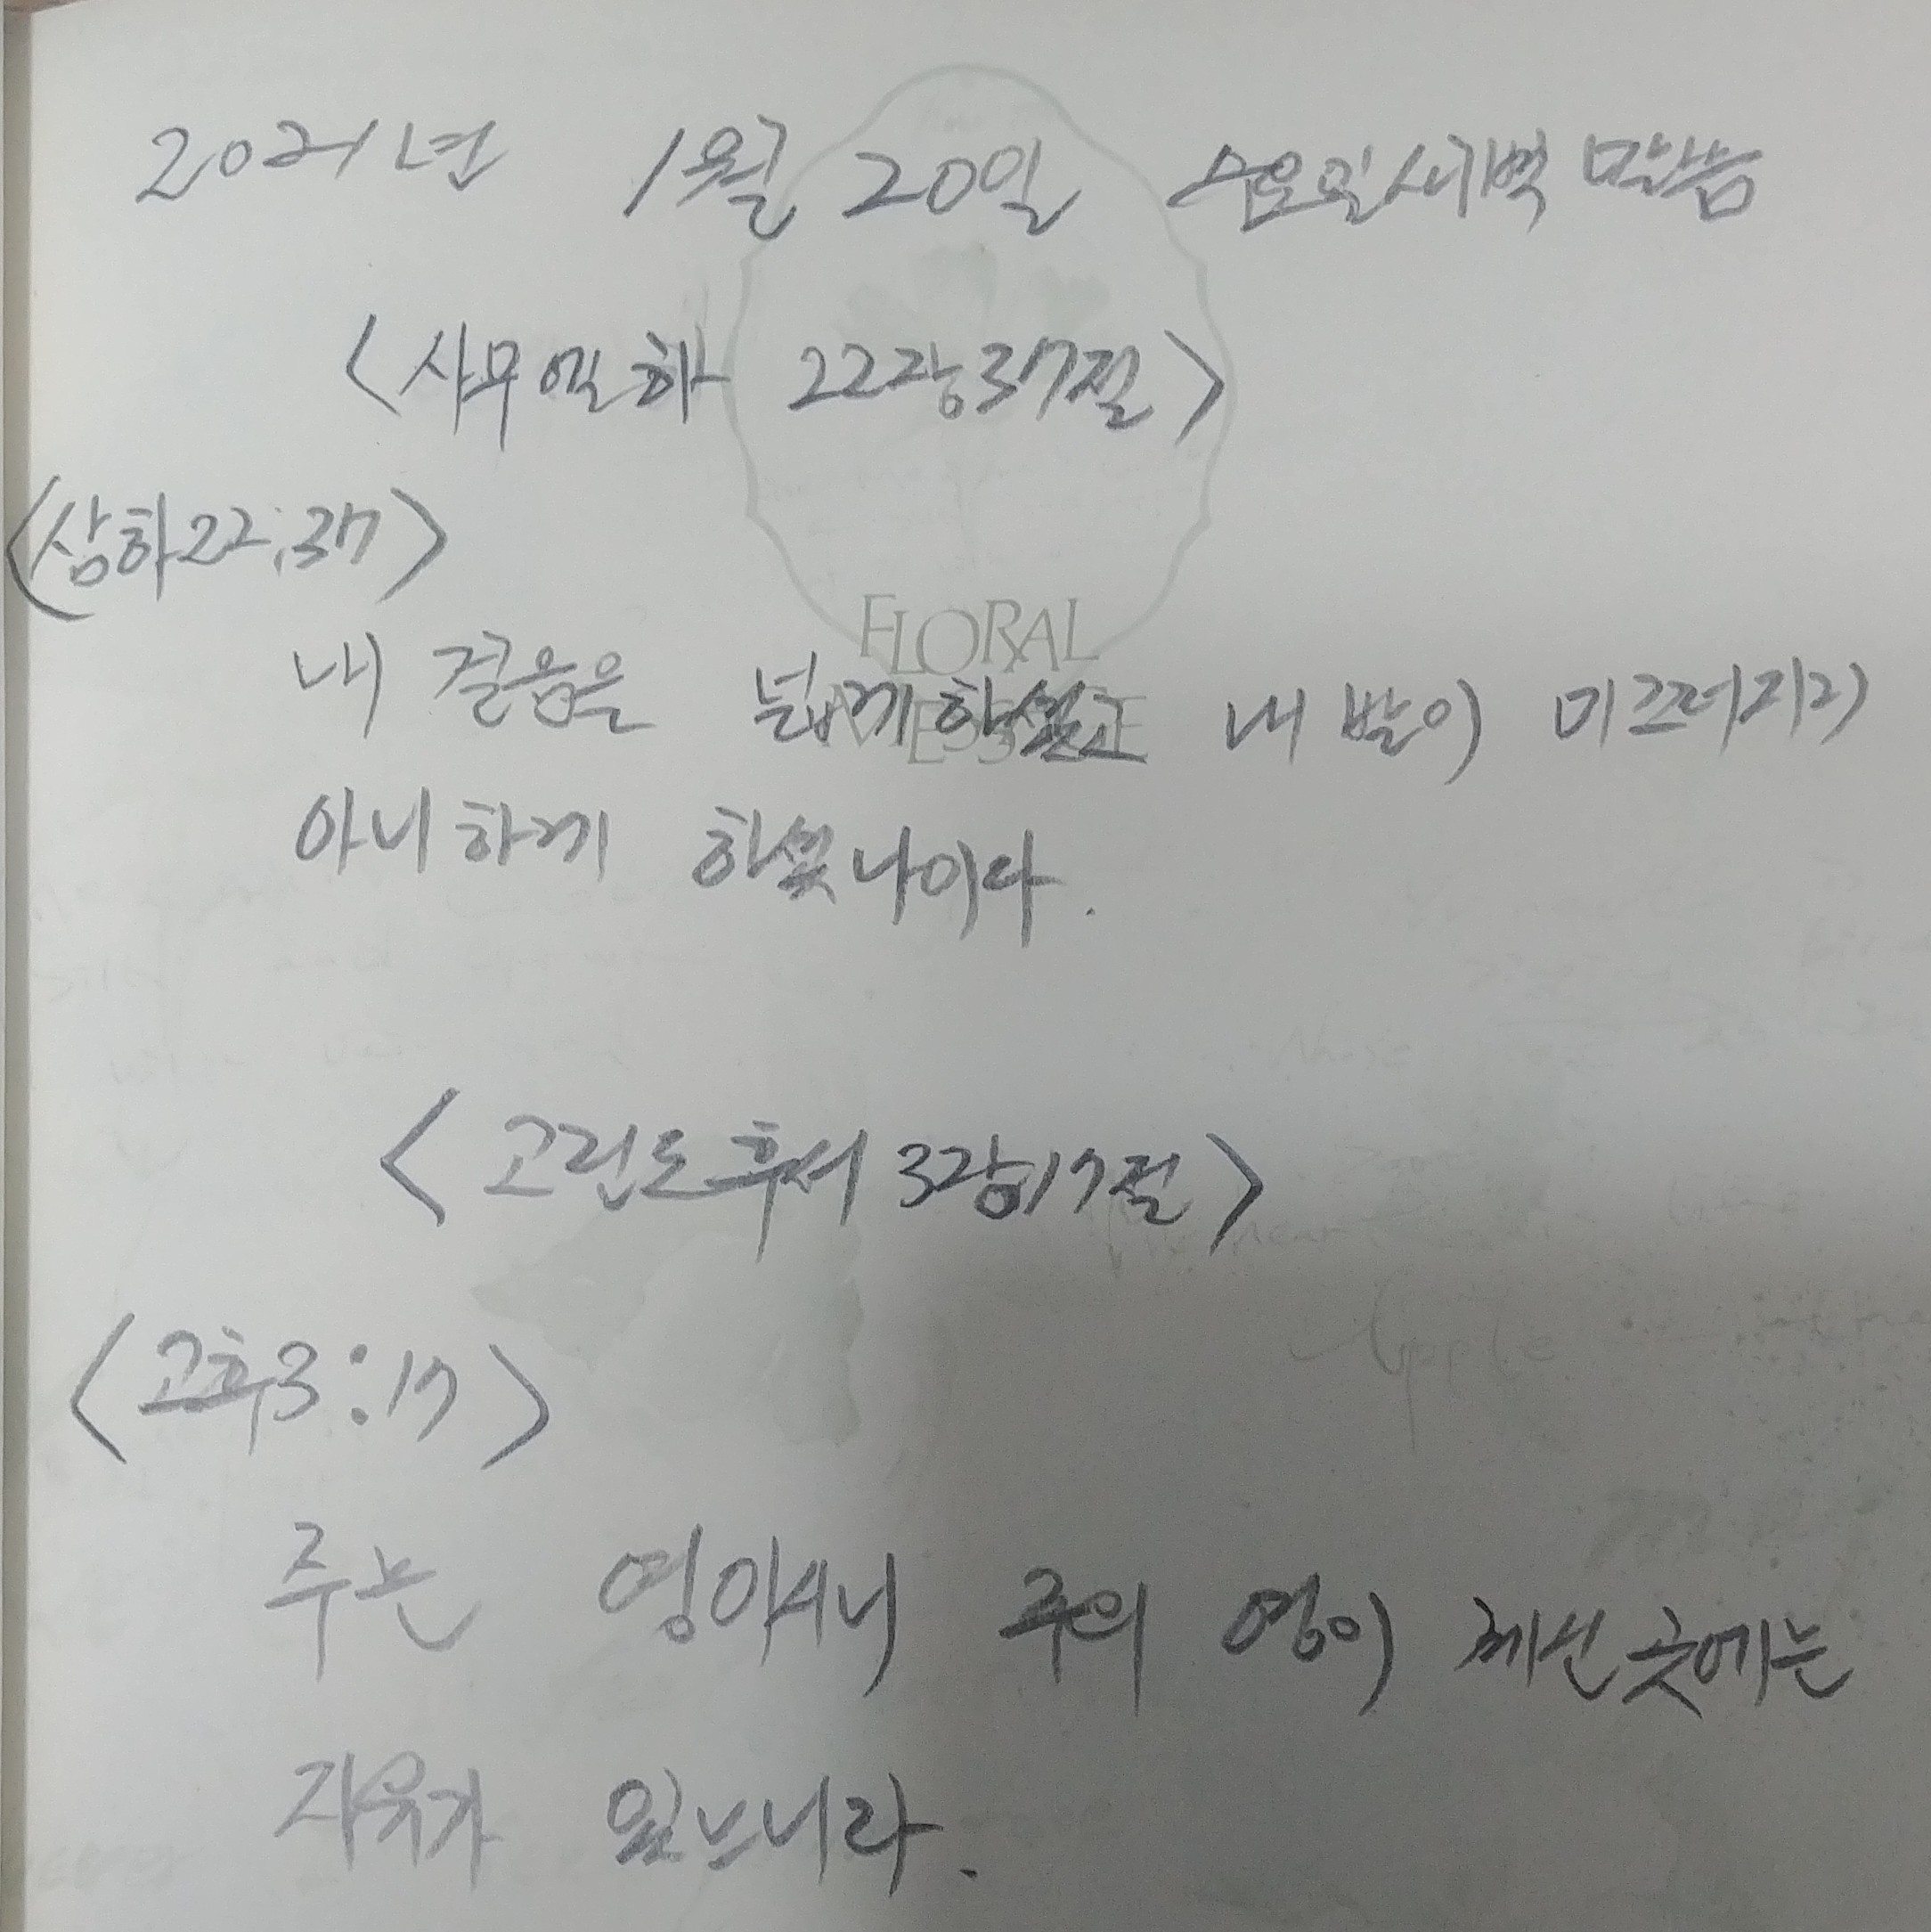 2021년 1월 20일 수요일새벽 말씀
<사무엘하 22장37절>
<삼하22:37>
FLORAL
내 걸음을 넓게하셨고 내 발이 미끄러지지
아니하게 하셨나이다.
<고린도후서 3장17절>
<고후3:17>
주는 영이시니 주의 영이 계신곳에는
자유가 있느니라.